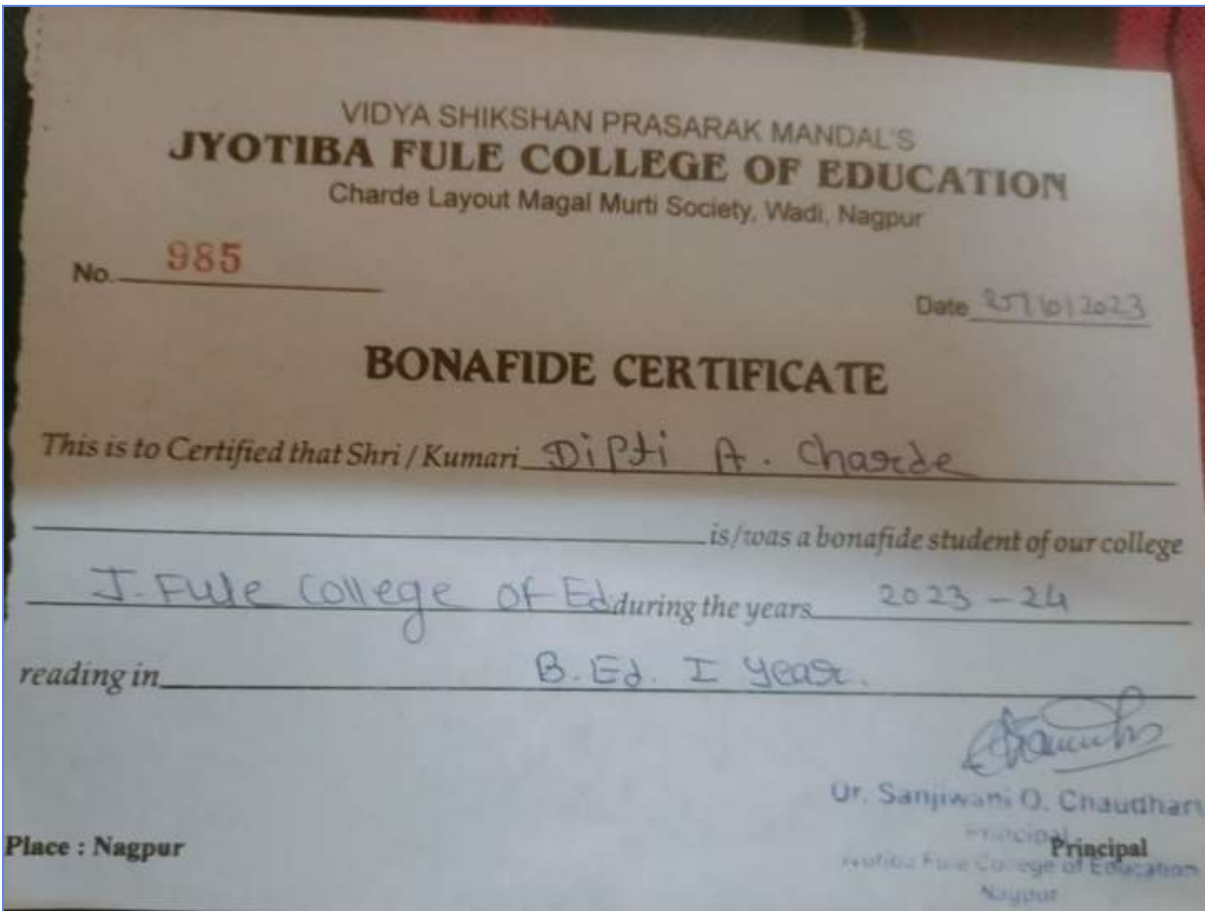 VIDYA SHIKSHAN PRASARAK MANDAL'S
JYOTIBA FULE COLLEGE OF EDUCATION
Charde Layout Magal Murti Society, Wadi, Nagpur
No. 985
Date 2023
BONAFIDE CERTIFICATE
This is to Certified that Shri / Kumari Dipti A. Charde
is/was a bonafide student of our college
J. Fule College of Ed. during the years 2023-24
reading in B.Ed. I year.
Dr. Sanjiwani O. Chaudhari
Principal
Place : Nagpur Principal
Jyotiba Fule College of Education
Nagpur